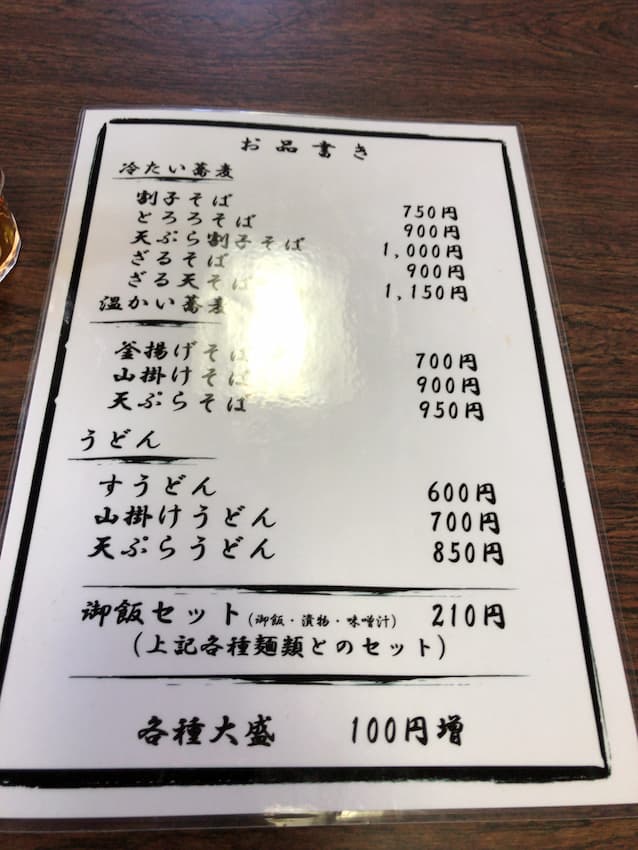 お品書き
冷たい蕎麦
割子そば 750円
とろろそば 900円
天ぷら割子そば 1,000円
ざるそば 900円
ざる天そば 1,150円
温かい蕎麦
釜揚げそば 700円
山掛けそば 900円
天ぷらそば 950円
うどん
すうどん 600円
山掛けうどん 700円
天ぷらうどん 850円
御飯セット(御飯・漬物・味噌汁) 210円
(上記各種麺類とのセット)
各種大盛 100円増